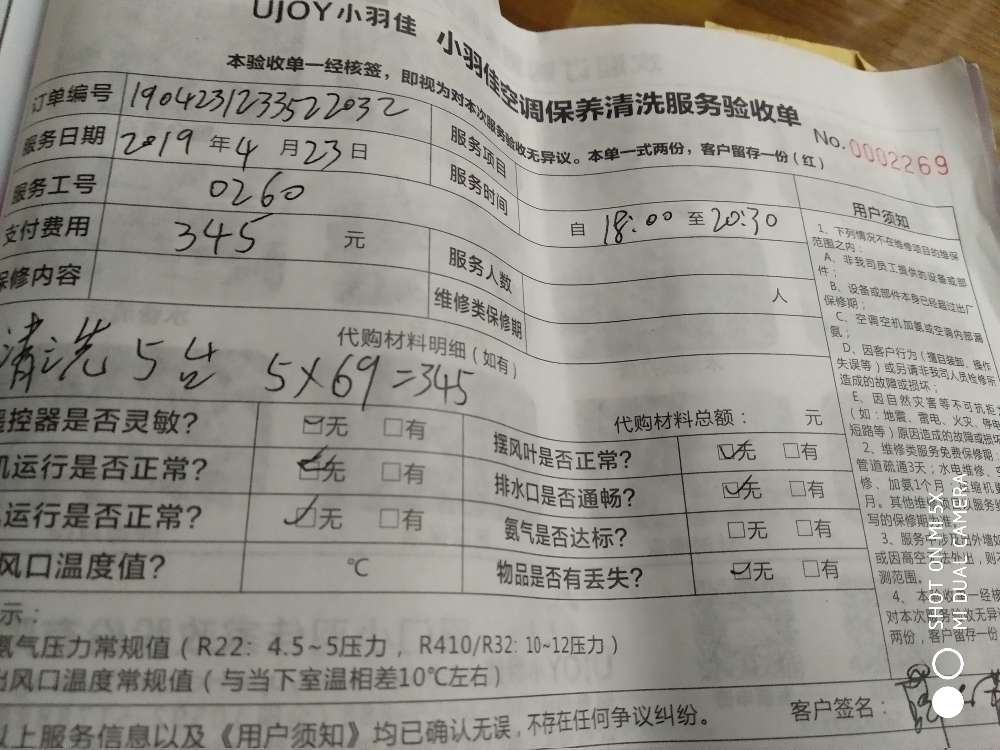 UJOY小羽佳 小羽佳空调保养清洗服务验收单
本验收单一经核签，即视为对本次服务验收无异议。本单一式两份，客户留存一份（红）
No. 0002269
订单编号 190423123352​2032 服务项目
服务日期 2019 年 4 月 23 日 服务时间 自 18:00 至 20:30
服务工号 0260
支付费用 345 元 服务人数 人
保修内容 维修类保修期
代购材料明细（如有）
清洗 5台 5×69=345
代购材料总额： 元
遥控器是否灵敏? □无 □有 摆风叶是否正常? □无 □有
机运行是否正常? □无 □有 排水口是否通畅? □无 □有
运行是否正常? □无 □有 氨气是否达标? □无 □有
风口温度值? ℃ 物品是否有丢失? □无 □有
示：
氨气压力常规值（R22: 4.5~5压力，R410/R32: 10~12压力）
出风口温度常规值（与当下室温相差10℃左右）
以上服务信息以及《用户须知》均已确认无误，不存在任何争议纠纷。
客户签名：
用户须知
1、下列情况不在维修项目的维保
范围之内：
A、非我司员工提供的设备或部
件；
B、设备或部件本身已经超过出厂
保修期；
C、空调空机加氨或空调内部漏
氨；
D、因客户行为（擅自装卸、操作
失误等）或另请非我司人员检修所
造成的故障或损坏；
E、因自然灾害等不可抗拒
（如：地震、雷电、火灾、停电
短路等）原因造成的故障或损坏
2、维修类服务免费保修期：
管道疏通3天；水电维修、
修、加氨1个月；压缩机更
月。其他维修项目以服务
写的保修期为准
3、服务中涉及外墙
或因高空无法处出，则不
测范围。
4、本验收单一经核
对本次服务验收无异议
两份，客户留存一份
SHOT ON MI 5X
MI DUAL CAMERA